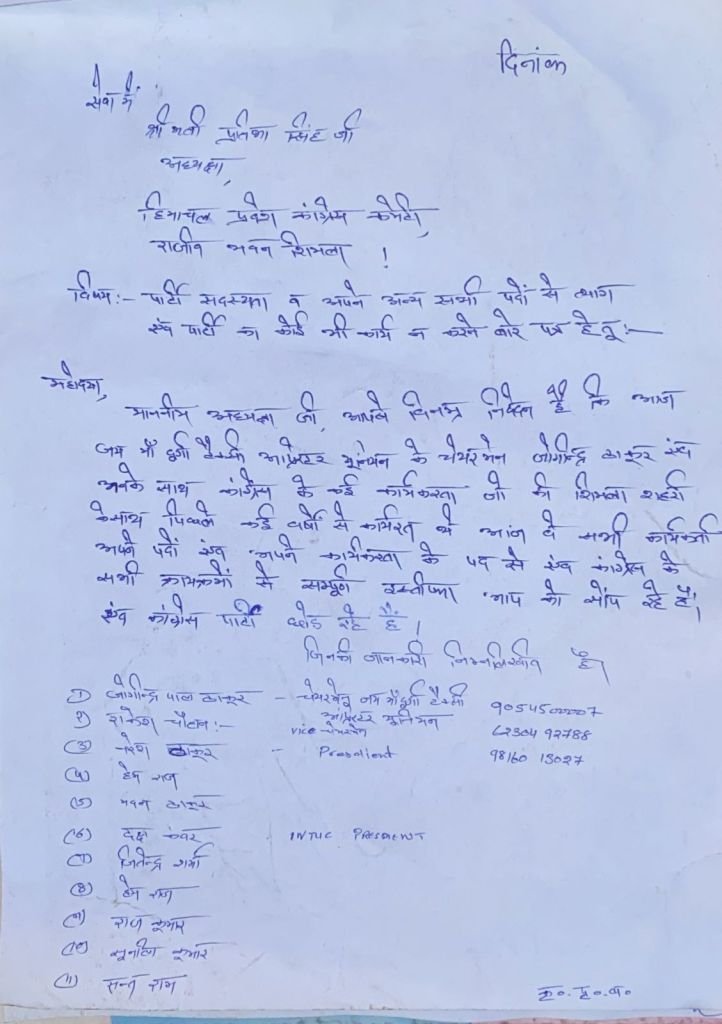 दिनांक
सेवा में
श्रीमती प्रतिभा सिंह जी
अध्यक्षा,
हिमाचल प्रदेश कांग्रेस कमेटी,
राजीव भवन शिमला !
विषय:- पार्टी सदस्यता व अपने अन्य सभी पदों से त्याग
एवं पार्टी का कोई भी कार्य न करने बारे पत्र हेतू:-
महोदया,
माननीय अध्यक्षा जी, आपसे विनम्र निवेदन है कि आज
जय माँ दुर्गा टैक्सी आप्रेटर यूनियन के चेयरमेन जोगीन्द्र ठाकुर एवं
अनके साथ कांग्रेस के कई कार्यकरता जो की शिमला शहरी
के साथ पिछले कई वर्षो से कार्यरत थे आज वे सभी कार्यकर्ता
अपने पदों एवं अपने कार्यकरता के पद से एवं कांग्रेस के
सभी कार्यक्रमों से सम्पूर्ण इस्तीफा आप को सोंप रहे है।
एवं कांग्रेस पार्टी छोड रहे है।
जिनकी जानकारी निम्नलिखीत है।
① जोगीन्द्र पाल ठाकुर - चेयरमेन जय माँ दुर्गा टैक्सी 9054500007
आप्रेटर यूनियन
२) राकेश चौहान:- vice चेयरमेन 62304 92788
(3) नरेश ठाकुर - President 98160 13027
(4) हेम राज
(5) मदन ठाकुर
(6) दक्ष कंवर - INTUC PRESIDENT
(7) जितेन्द्र शर्मा
(8) हेम राज
(9) राज कुमार
(10) सुनील कुमार
(11) सन्त राम
कृ० पृ० प०